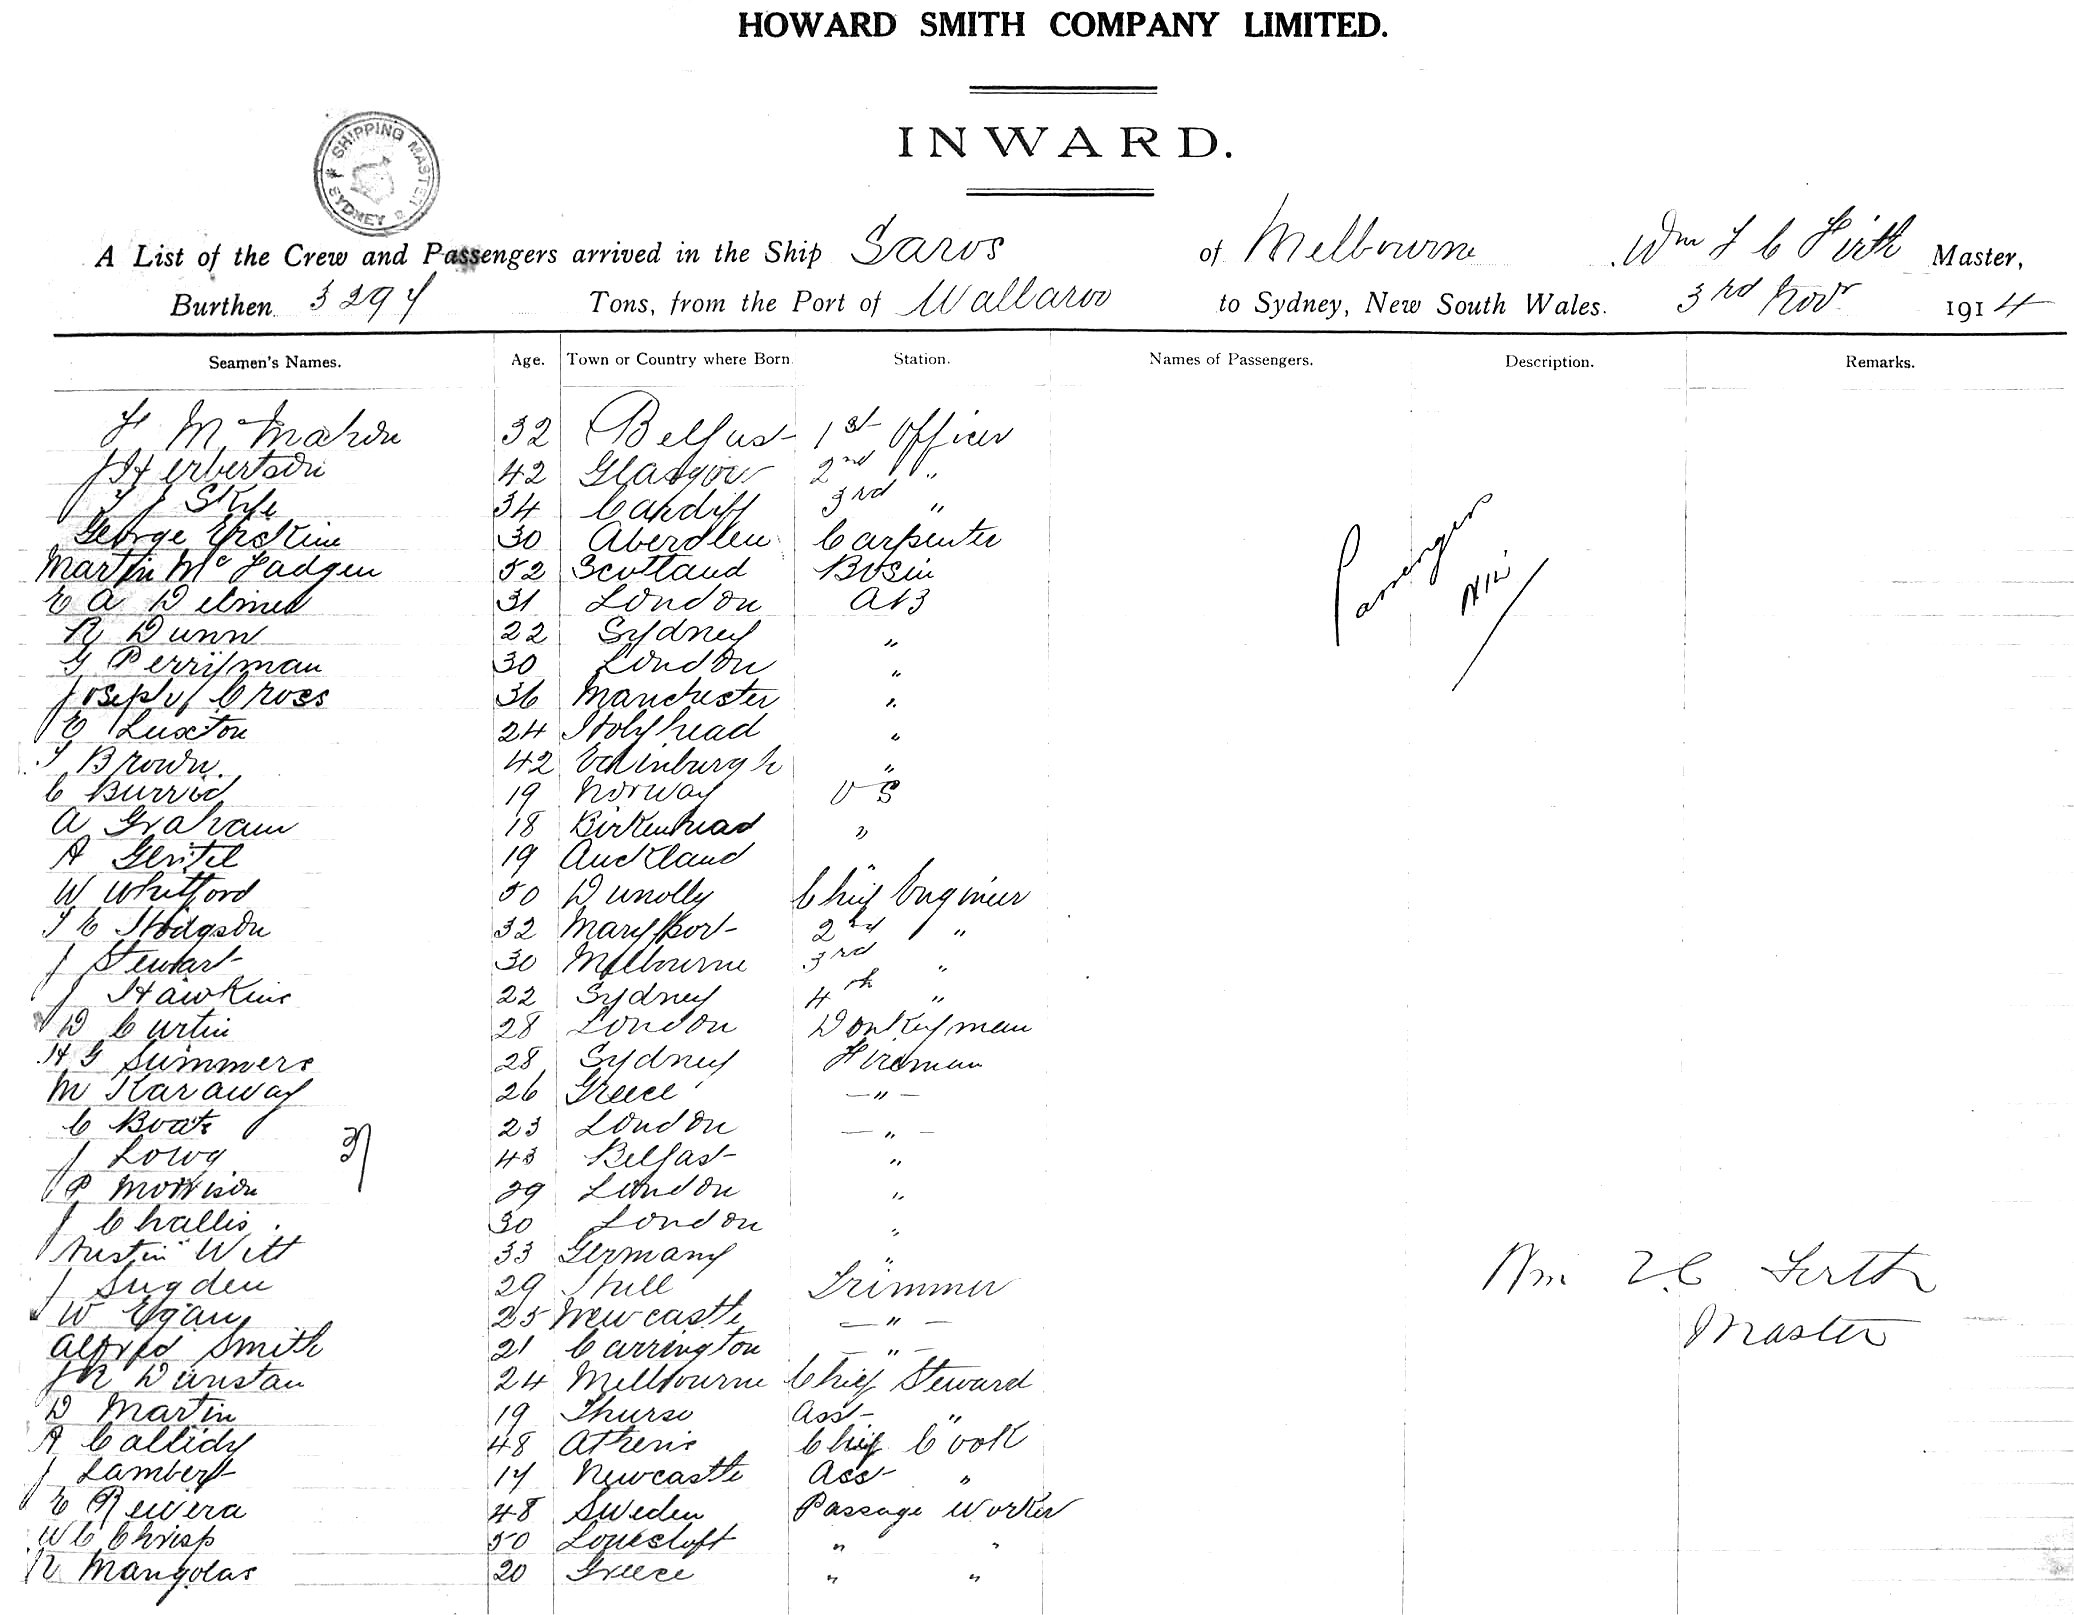 HOWARD SMITH COMPANY LIMITED.
INWARD.
SHIPPING MASTER SYDNEY
A List of the Crew and Passengers arrived in the Ship Saros of Melbourne Wm F C Firth Master,
Burthen 3294 Tons, from the Port of Wallaroo to Sydney, New South Wales. 3rd Novr 1914
Seamen's Names. Age. Town or Country where Born. Station. Names of Passengers. Description. Remarks.
F McMahon 32 Belfast 1st Officer
J Herbertson 42 Glasgow 2nd "
34 Cardiff 3rd "
George Erskine 30 Aberdeen Carpenter
Martin McFadgen 52 Scotland Bosin
E A 31 London AB
R Dunn 22 Sydney "
G Perryman 30 London "
Joseph Cross 36 Manchester "
E Luxton 24 Holyhead "
T Brown. 42 Edinburgh "
C 19 Norway O S
A Graham 18 Birkenhead "
A 19 Auckland "
W Whitford 50 Dunolly Chief Engineer
T C Hodgson 32 Maryport 2nd "
J Stewart 30 Melbourne 3rd "
J Hawkins 22 Sydney 4th "
D Curtin 28 London Donkeyman
H G Summers 28 Sydney Fireman
M Karaway 26 Greece "
C Boats 23 London "
J 43 Belfast "
P Morrison 29 London "
J Challis 30 London "
Austin Witt 33 Germany "
J Sugden 29 Hull Trimmer
W Egan 25 Newcastle "
Alfred Smith 21 Carrington "
J R Dunstan 24 Melbourne Chief Steward
D Martin 19 Thurso Asst "
A Callidy 48 Athens Chief Cook
J Lambert 17 Newcastle Asst "
E Rewera 48 Sweden Passage Worker
W C Chrisp 50 Lowestoft " "
N Mangolas 20 Greece " "
Passengers
Nil
37
Wm F.C Firth
Master